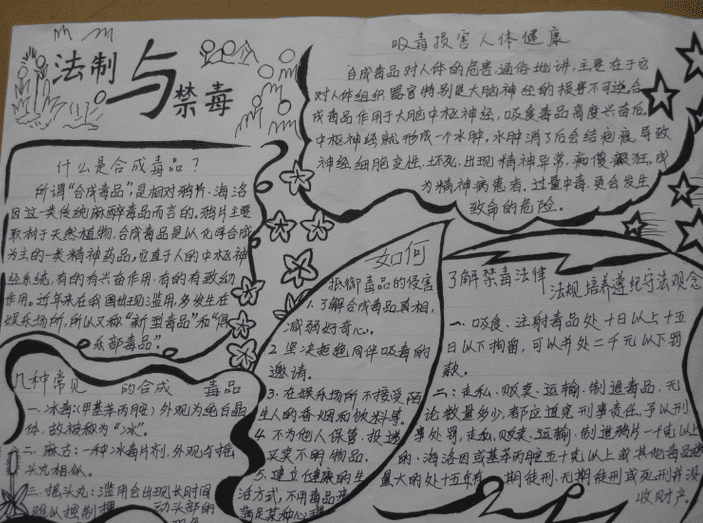 法制与禁毒
什么是合成毒品?
所谓“合成毒品”,是相对鸦片、海洛
因这一类传统麻醉毒品而言的。鸦片主要
取材于天然植物,合成毒品是以化学合成
为主的一类精神药品,它直于人的中枢神
经系统,有的有兴奋作用,有的有致幻
作用。近年来在我国出现滥用,多发生在
娱乐场所,所以又称“新型毒品”和“俱
乐部毒品”。
几种常见 的合成 毒品
一、冰毒:(甲基苯丙胺)外观为纯白晶
体,故被称为“冰”。
二、麻古:一种冰毒片剂,外观与摇
头丸相似。
三、摇头丸:滥用会出现长时间
难以控制 动头部的
吸毒损害人体健康
合成毒品对人体的危害,通俗地讲,主要在于它
对人体组织器官特别是大脑神经的损害不可逆,合
成毒品作用于大脑中枢神经,吸食毒品高度兴奋后,
中枢神经就形成一个水肿,水肿消了后会结疤痕,导致
神经细胞变性、坏死,出现精神异常,痴傻癫狂。成
为精神病患者。过量中毒,更会发生
致命的危险。
如何
抵御毒品的侵害
1.了解合成毒品真相,
减弱好奇心。
2.坚决拒绝同伴吸毒的
邀请。
3.在娱乐场所不接受陌
生人的香烟和饮料等。
4.不为他人保管、投递
买卖不明物品。
5.建立健康的生
活方式,不用毒品
满足某种心理
了解禁毒法律 法规 培养遵纪守法观念
一、吸食、注射毒品处十日以上十五
日以下拘留,可以并处二千元以下罚
款。
二:走私、贩卖、运输、制造毒品,无
论数量多少,都应追究刑事责任,予以刑
事处罚,走私、贩卖、运输、制造鸦片一千克以上
的、海洛因或甲基苯丙胺五十克以上或其他毒品
量大的处十五年有期徒刑、无期徒刑或死刑并没
收财产。